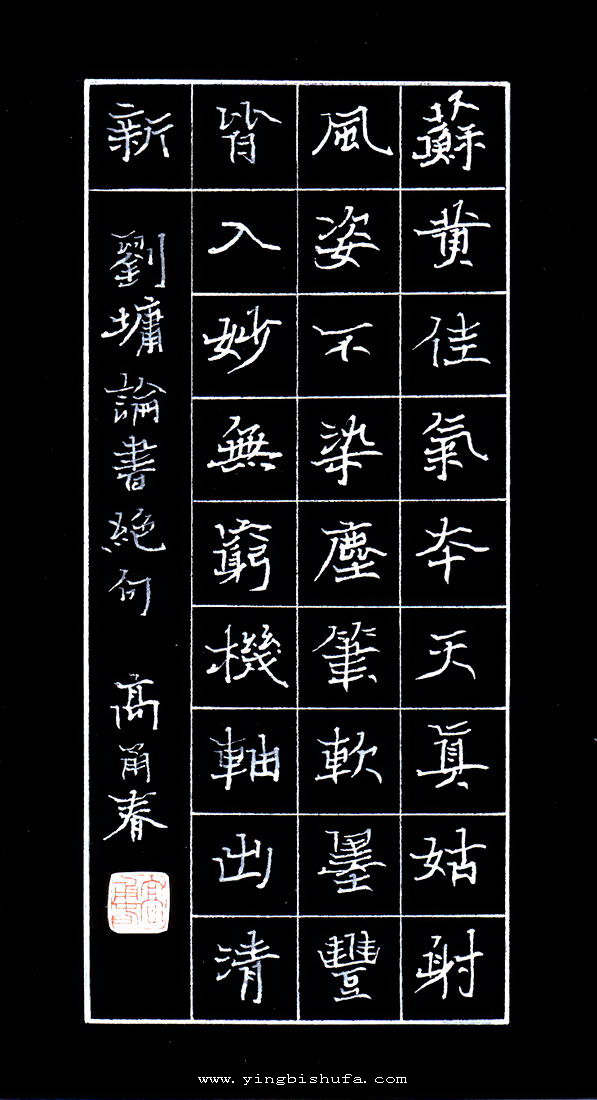 蘇黃佳氣本天真姑射
風姿不染塵筆軟墨豐
皆入妙無窮機軸出清
新
劉墉論書絕句 高甬春
www.yingbishufa.com